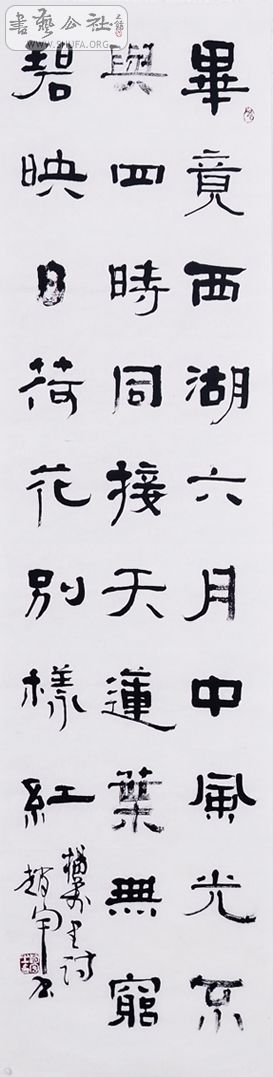 畢竟西湖六月中風光不
與四時同接天蓮葉無窮
碧映日荷花別樣紅
楊萬里詩
趙軍書
書藝公社
WWW.SHUFA.ORG